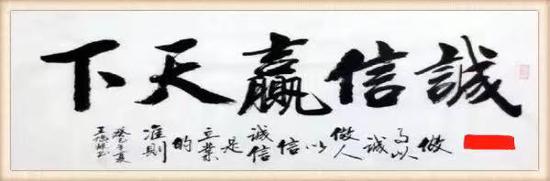 誠信贏天下
做事以诚做人以信诚信是立業的准則
癸巳年夏